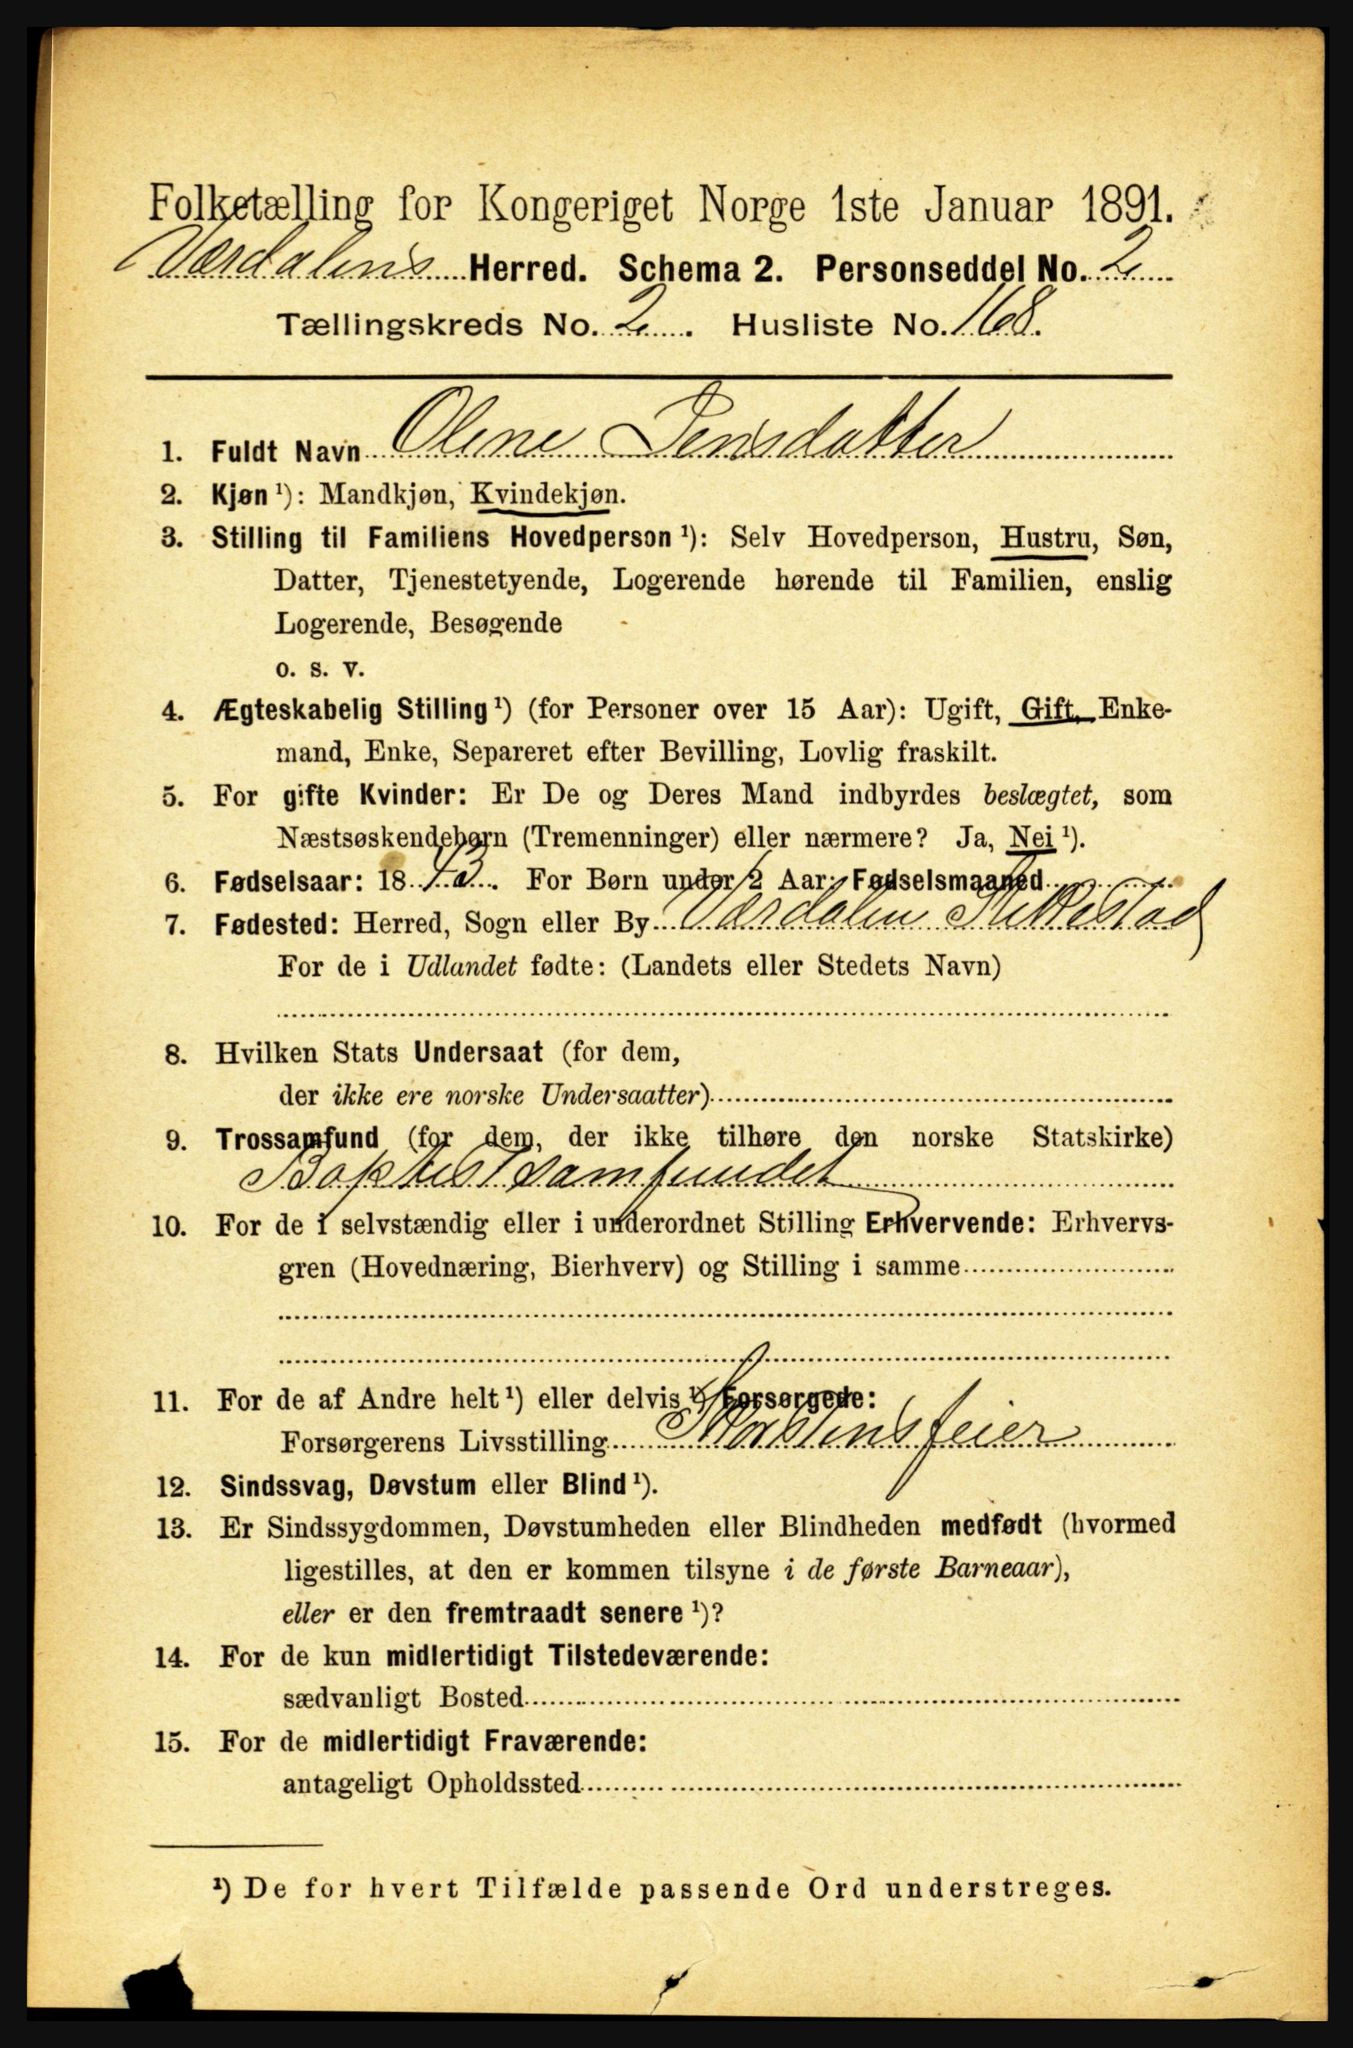 Folketælling for Kongeriget Norge 1ste Januar 1891.
Værdalens Herred. Schema 2. Personseddel No. 2
Tællingskreds No. 2. Husliste No. 168.
1. Fuldt Navn Oline Jensdatter
2. Kjøn ¹): Mandkjøn, Kvindekjøn.
3. Stilling til Familiens Hovedperson ¹): Selv Hovedperson, Hustru, Søn,
Datter, Tjenestetyende, Logerende hørende til Familien, enslig
Logerende, Besøgende
o. s. v.
4. Ægteskabelig Stilling ¹) (for Personer over 15 Aar): Ugift, Gift, Enke-
mand, Enke, Separeret efter Bevilling, Lovlig fraskilt.
5. For gifte Kvinder: Er De og Deres Mand indbyrdes beslægtet, som
Næstsøskendebørn (Tremenninger) eller nærmere? Ja, Nei ¹).
6. Fødselsaar: 1843. For Børn under 2 Aar: Fødselsmaaned
7. Fødested: Herred, Sogn eller By Værdalen Stiklestad
For de i Udlandet fødte: (Landets eller Stedets Navn)
8. Hvilken Stats Undersaat (for dem,
der ikke ere norske Undersaatter)
9. Trossamfund (for dem, der ikke tilhøre den norske Statskirke)
Baptistsamfundet
10. For de i selvstændig eller i underordnet Stilling Erhvervende: Erhvervs-
gren (Hovednæring, Bierhverv) og Stilling i samme
11. For de af Andre helt ¹) eller delvis ¹) Forsørgede:
Forsørgerens Livsstilling Skorstensfeier
12. Sindssvag, Døvstum eller Blind ¹).
13. Er Sindssygdommen, Døvstumheden eller Blindheden medfødt (hvormed
ligestilles, at den er kommen tilsyne i de første Barneaar),
eller er den fremtraadt senere ¹)?
14. For de kun midlertidigt Tilstedeværende:
sædvanligt Bosted
15. For de midlertidigt Fraværende:
antageligt Opholdssted
¹) De for hvert Tilfælde passende Ord understreges.